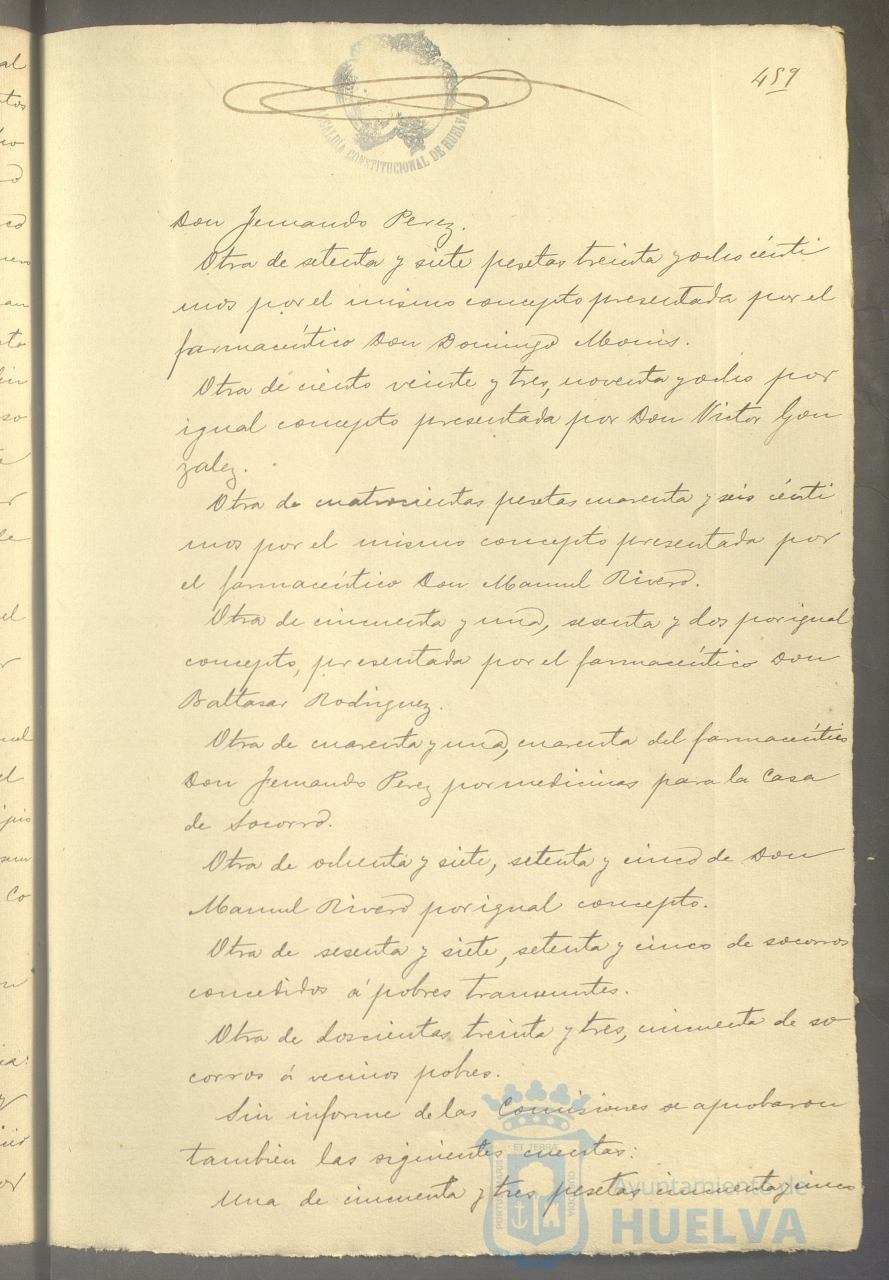 459
ALCALDÍA CONSTITUCIONAL DE HUELVA
Don Fernando Perez.
Otra de setenta y siete pesetas treinta y ocho cénti
mos por el mismo concepto presentada por el
farmacéutico Don Domingo
Otra de ciento veinte y tres, noventa y ocho por
igual concepto presentada por Don Victor Gon
zalez.
Otra de cuatrocientas pesetas cuarenta y seis cénti
mos por el mismo concepto presentada por
el farmacéutico Don Manuel Rivero.
Otra de cincuenta y una, sesenta y dos por igual
concepto, presentada por el farmacéutico Don
Baltasar Rodriguez.
Otra de cuarenta y una, cuarenta del farmacéutico
Don Fernando Perez por medicinas para la Casa
de Socorro.
Otra de ochenta y siete, setenta y cinco de Don
Manuel Rivero por igual concepto.
Otra de sesenta y siete, setenta y cinco de socorros
concedidos á pobres transeuntes.
Otra de doscientas treinta y tres, cincuenta de so
corros á vecinos pobres.
Sin informe de las Comisiones se aprobaron
tambien las siguientes cuentas:
Una de cincuenta y tres pesetas cincuenta y cinco
Ayuntamiento de
HUELVA
PORTUS MARIS ET TERRAE CUSTODIA